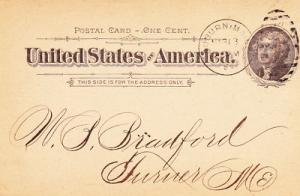 POSTAL CARD – ONE CENT.
United States of America.
THIS SIDE IS FOR THE ADDRESS ONLY.
W. S. Bradford
Turner Me